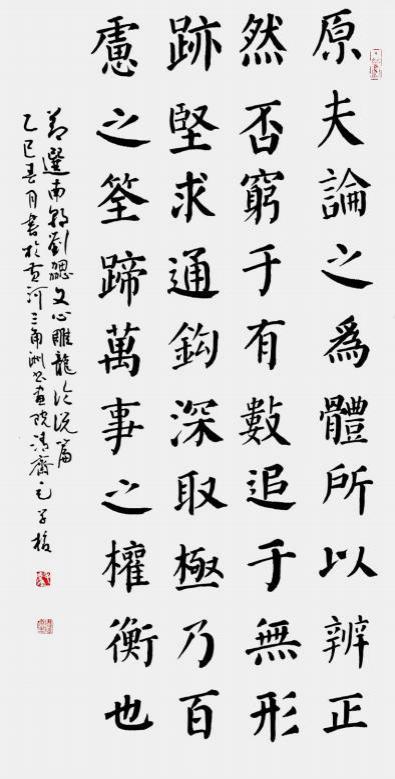 原夫論之爲體所以辨正
然否窮于有數追于無形
跡堅求通鈎深取極乃百
慮之筌蹄萬事之權衡也
選南朝劉勰文心雕龍論說篇
乙巳春月書於黃河三角洲書畫院清齋